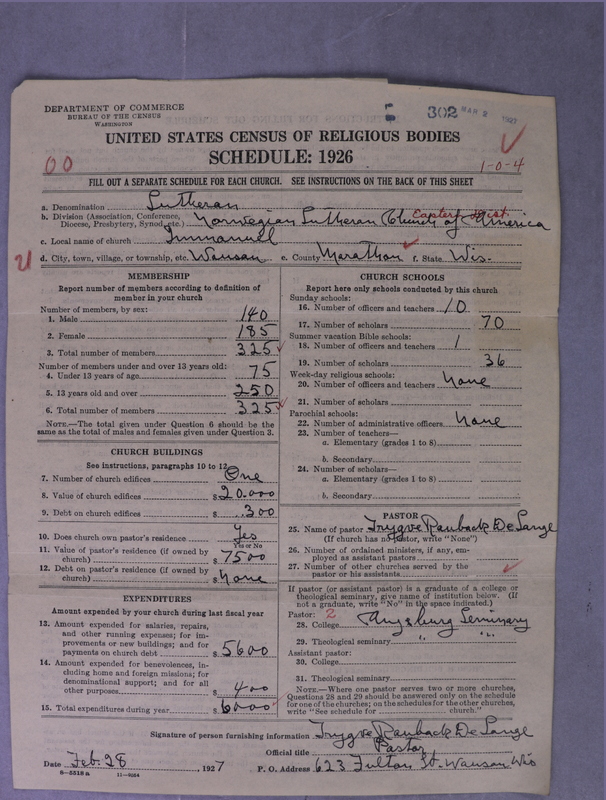 DEPARTMENT OF COMMERCE
BUREAU OF THE CENSUS
WASHINGTON
302 MAR 2 1927
UNITED STATES CENSUS OF RELIGIOUS BODIES
SCHEDULE: 1926
00
1-0-4
FILL OUT A SEPARATE SCHEDULE FOR EACH CHURCH. SEE INSTRUCTIONS ON THE BACK OF THIS SHEET
a. Denomination Lutheran
b. Division (Association, Conference, Diocese, Presbytery, Synod, etc.) Norwegian Lutheran Church of America
Eastern Dist.
c. Local name of church Immanuel
d. City, town, village, or township, etc. Wausau e. County Marathon f. State Wis.
MEMBERSHIP
Report number of members according to definition of
member in your church
Number of members, by sex:
1. Male 140
2. Female 185
3. Total number of members 325
Number of members under and over 13 years old:
4. Under 13 years of age 75
5. 13 years old and over 250
6. Total number of members 325
NOTE.—The total given under Question 6 should be
same as the total of males and females given under Question 3.
CHURCH BUILDINGS
See instructions, paragraphs 10 to 12
7. Number of church edifices One
8. Value of church edifices $20.000
9. Debt on church edifices $300
10. Does church own pastor's residence Yes
Yes or No
11. Value of pastor's residence (if owned by
church) $7500
12. Debt on pastor's residence (if owned by
church) $None
EXPENDITURES
Amount expended by your church during last fiscal year
13. Amount expended for salaries, repairs,
and other running expenses; for im-
provements or new buildings; and for
payments on church debt $5600
14. Amount expended for benevolences, in-
cluding home and foreign missions; for
denominational support; and for all
other purposes $400
15. Total expenditures during year $6000
CHURCH SCHOOLS
Report here only schools conducted by this church
Sunday schools:
16. Number of officers and teachers 10
17. Number of scholars 70
Summer vacation Bible schools:
18. Number of officers and teachers 1
19. Number of scholars 36
Week-day religious schools:
20. Number of officers and teachers None
21. Number of scholars
Parochial schools:
22. Number of administrative officers None
23. Number of teachers—
a. Elementary (grades 1 to 8)
b. Secondary
24. Number of scholars—
a. Elementary (grades 1 to 8)
b. Secondary
PASTOR
25. Name of pastor Trygve Rauback De Lange
(If church has no pastor, write "None")
26. Number of ordained ministers, if any, em-
ployed as assistant pastors
27. Number of other churches served by the
pastor or his assistants
If pastor (or assistant pastor) is a graduate of a college or
theological seminary, give name of institution below. (If
not a graduate, write "No" in the space indicated.)
Pastor: 2
28. College Augsburg Seminary
29. Theological seminary " "
Assistant pastor:
30. College
31. Theological seminary
NOTE.—Where one pastor serves two or more churches,
Questions 28 and 29 should be answered only on the schedule
for one of the churches; on the schedules for the other churches,
write "See schedule for church."
Signature of person furnishing information Trygve Rauback De Lange
Official title Pastor
Date Feb. 28, 1927 P. O. Address 623 Fulton St. Wausau Wis
8-5518a 11-9064